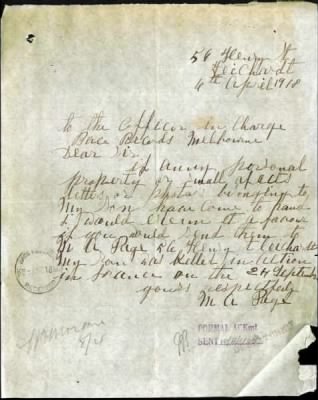 56 Henry St
Leichardt
4th April 1918
To the Officer in Charge
Base Records Melbourne
Dear Sir
if anny personal
property or small effects
letters or photos belonging to
My son have come to hand
I would esteem it a favour
if you would send them to
M A Page 56 Henry St Leichardt
My son was killed in action
in France on the 24 September
yours respectfuly
M A Page
FORMAL ACKmt
SENT